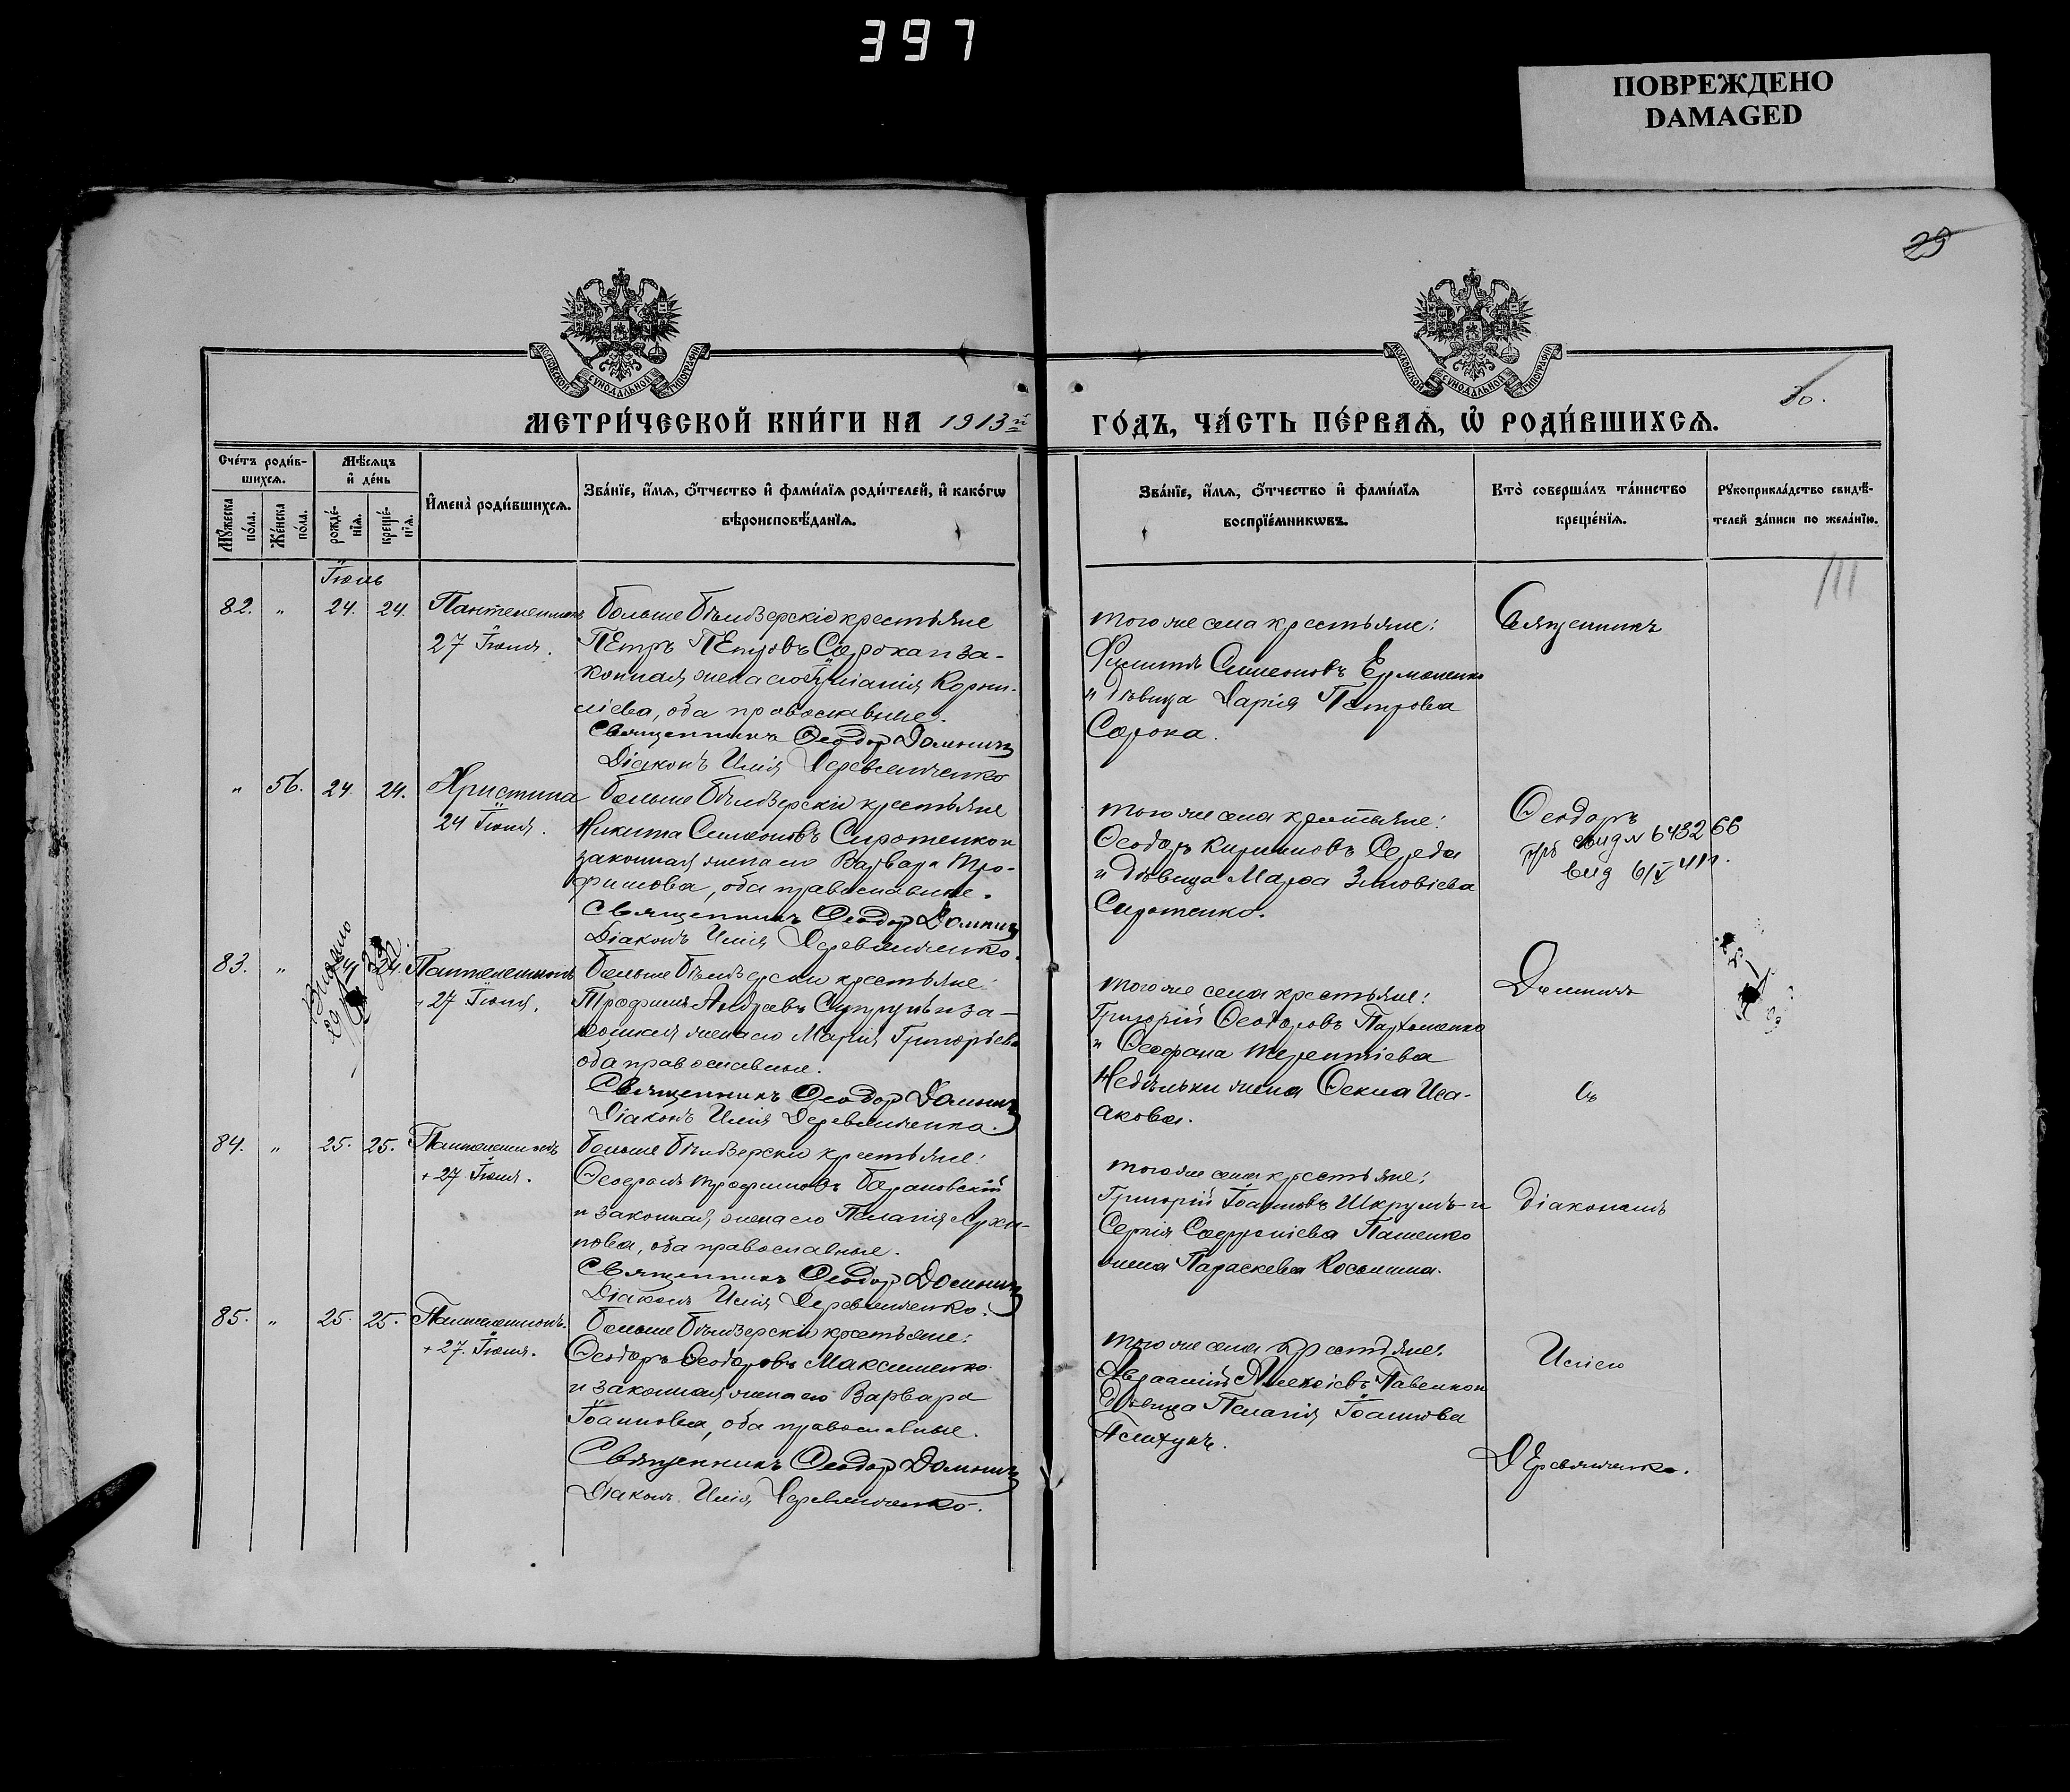 397
ПОВРЕЖДЕНО
DAMAGED
29
30.
МОСКОВСКОЙ СѴНОДАЛЬНОЙ ТИПОГРАФІИ
МОСКОВСКОЙ СѴНОДАЛЬНОЙ ТИПОГРАФІИ
МЕТРИ́ЧЕСКОЙ КНИ́ГИ НА 1913й ГО́ДЪ, ЧА́СТЬ ПЕ́РВАѦ, Ѡ҆ РОДИ́ВШИХСѦ.
Сче́тъ роди́в-
шихсѧ.
Мꙋ́жеска по́ла.
Же́нска по́ла.
Мѣ́сѧцъ
и҆ де́нь
рожде́-
нїѧ.
креще́-
нїѧ.
И҆мена̀ роди́вшихсѧ.
Зва́нїе, и҆́мѧ, ѻ҆́тчество и҆ фами́лїѧ роди́телей, и҆ како́гѡ
вѣроисповѣ́данїѧ.
Зва́нїе, и҆́мѧ, ѻ҆́тчество и҆ фами́лїѧ
воспрїе́мникѡвъ.
Кто̀ соверша́лъ та́инство
креще́нїѧ.
Рꙋкоприкла́дство свидѣ́-
телей за́писи по жела́нїю.
Іюль
82. " 24. 24. Пантелеимонъ
27 Іюля.
Больше Бѣлозерскіе крестьяне
Петръ Петровъ Сорока и за-
конная жена его Іуліанія Корни-
ліева, оба православные.
Священникъ Ѳеодор Домнич
Діаконъ Илія Деревянченко
того же села крестьяне:
Филиппъ Симеоновъ Ермоленко
и дѣвица Дарія Петрова
Сорока.
Священникъ
" 56. 24. 24. Христина
24 Іюля.
Больше Бѣлозерскіе крестьяне
Никита Симеоновъ Сиротенко и
законная жена его Варвара Тро-
фимова, оба православные.
Священникъ Ѳеодор Домнич
Діаконъ Илія Деревянченко.
того же села крестьяне:
Ѳеодоръ Кирилловъ Середа
и дѣвица Марѳа Зиновіева
Сиротенко.
Ѳеодоръ
свид N 643266
вид 6/V 41 г.
83. " 24. 24. Пантелеимонъ
27 Іюля.
Больше Бѣлозерскіе крестьяне:
Трофимъ Андреевъ Супрунъ и за-
конная жена его Марія Григорьева
оба православные.
Священникъ Ѳеодор Домнич
Діаконъ Илія Деревянченко.
того же села крестьяне:
Григорій Ѳеодоровъ Пархоменко
и Ѳеофана Терентіева
Недѣльки жена Ѳекла Иса-
акова.
Домнич
съ
84. " 25. 25. Пантелеимонъ
+ 27 Іюля.
Больше Бѣлозерскіе крестьяне:
Ѳеофанъ Трофимовъ Барановскій
и законная жена его Пелагія Архи-
пова, оба православные.
Священникъ Ѳеодор Домнич
Діаконъ Илія Деревянченко.
того же села крестьяне:
Григорій Іоанновъ Шкрумъ и
Сергія Софроніева Пащенко
жена Параскева Косьмина.
діакономъ
85. " 25. 25. Пантелеимонъ.
+ 27. Іюля.
Больше Бѣлозерскіе крестьяне:
Ѳеодоръ Ѳеодоровъ Максименко
и законная жена его Варвара
Іоаннова, оба православные.
Священникъ Ѳеодор Домнич
Діаконъ Илія Деревянченко.
того же села крестьяне:
Алексіевъ Павенко и
дѣвица Пелагія Іоаннова
Иліею
Деревянченко.